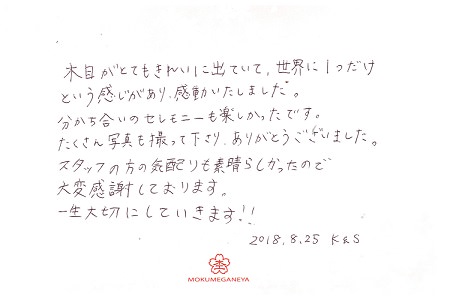 木目がとてもきれいに出ていて、世界に1つだけ
という感じがあり、感動いたしました。
分かち合いのセレモニーも楽しかったです。
たくさん写真も撮って下さり、ありがとうございました。
スタッフの方の気配りも素晴らしかったので
大変感謝しております。
一生大切にしていきます!!
2018.8.25 K&S
MOKUMEGANEYA